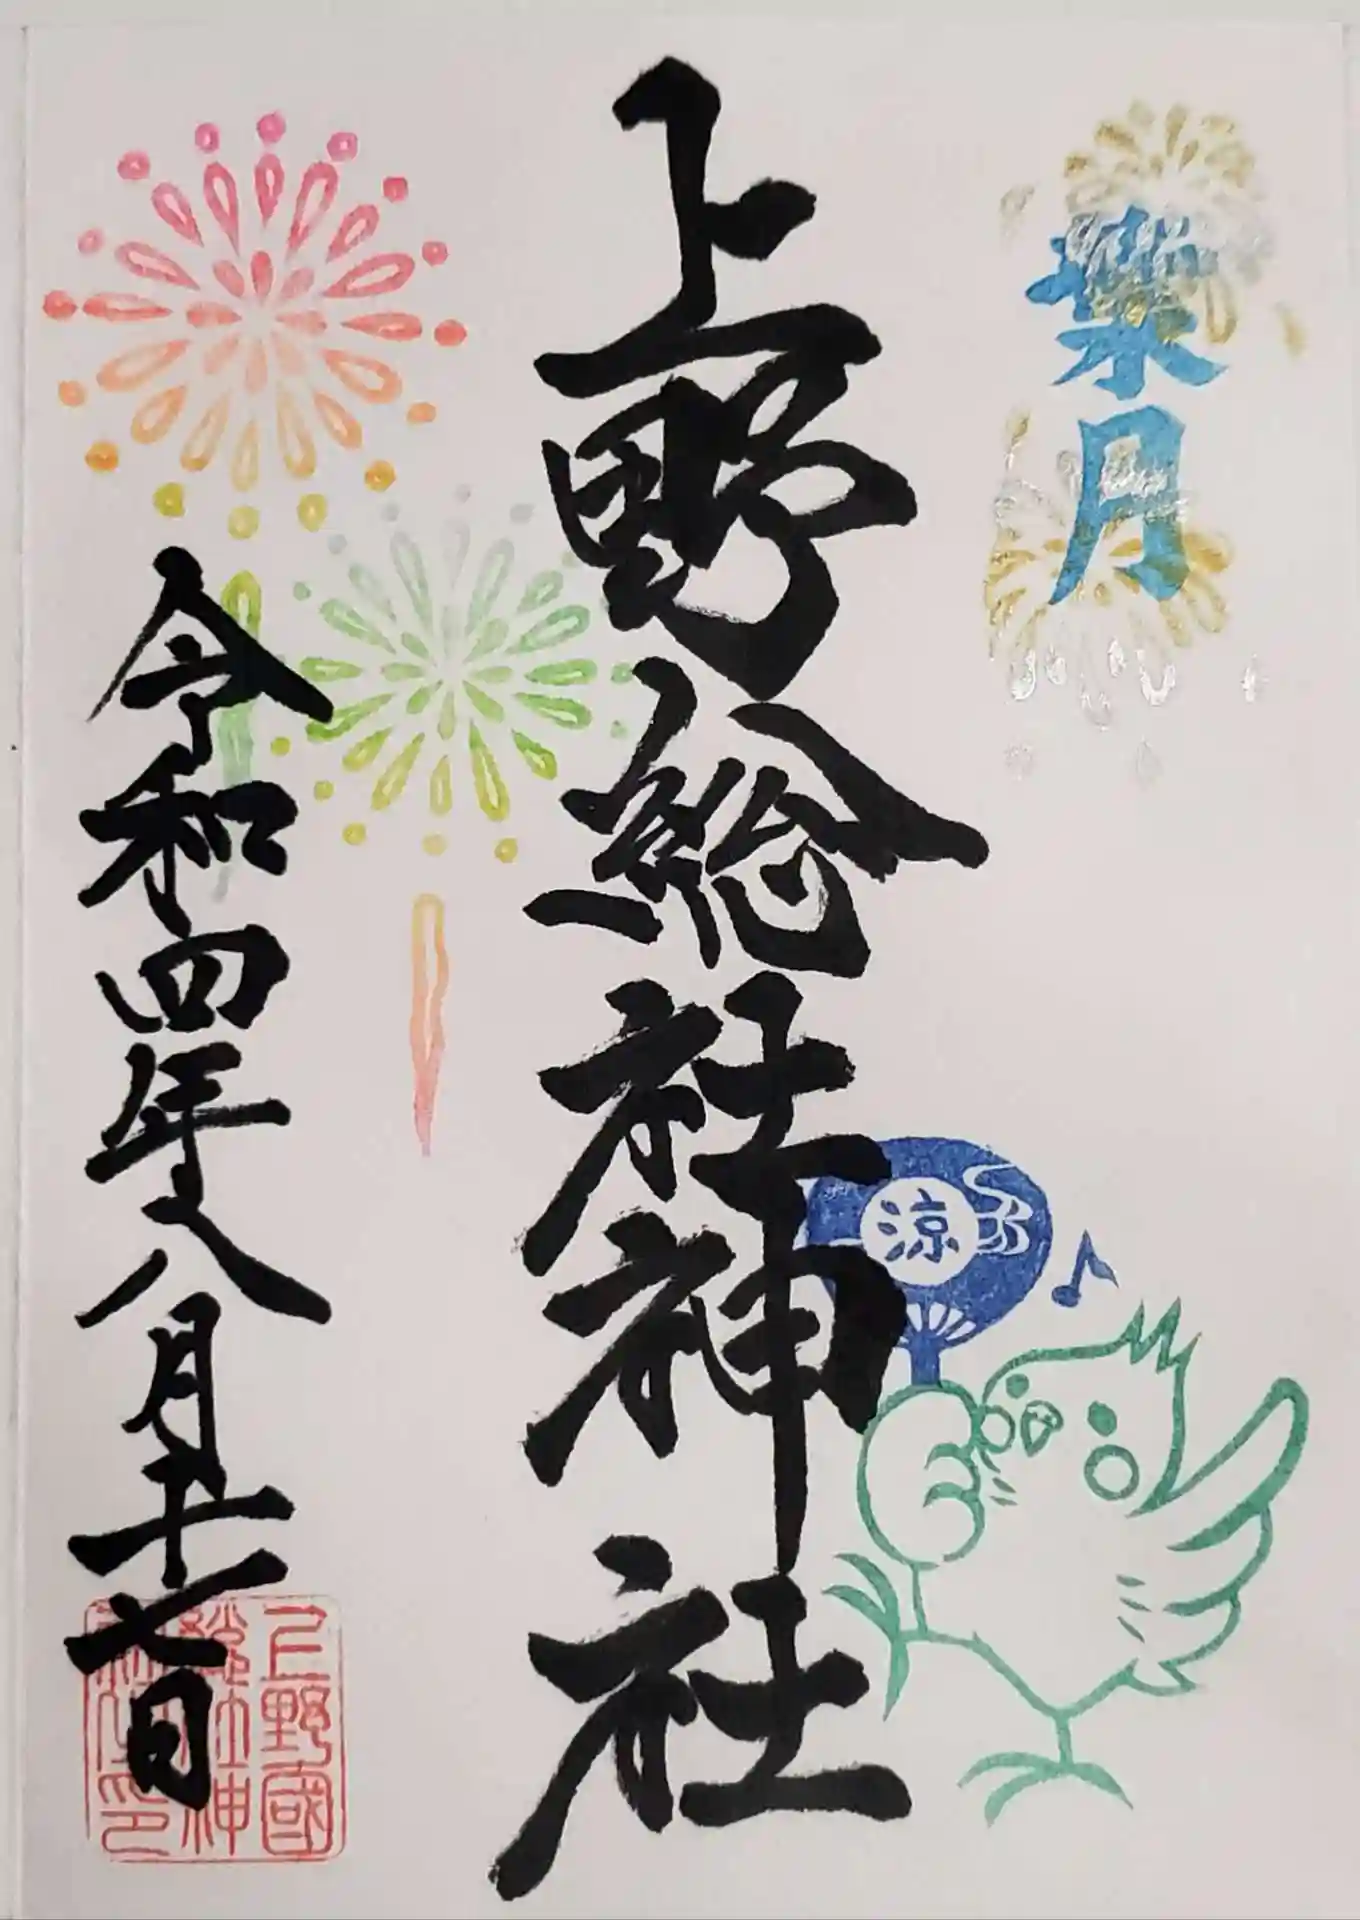 葉月
上野総社神社
涼
令和四年八月十七日
上野國
総社神
社之印